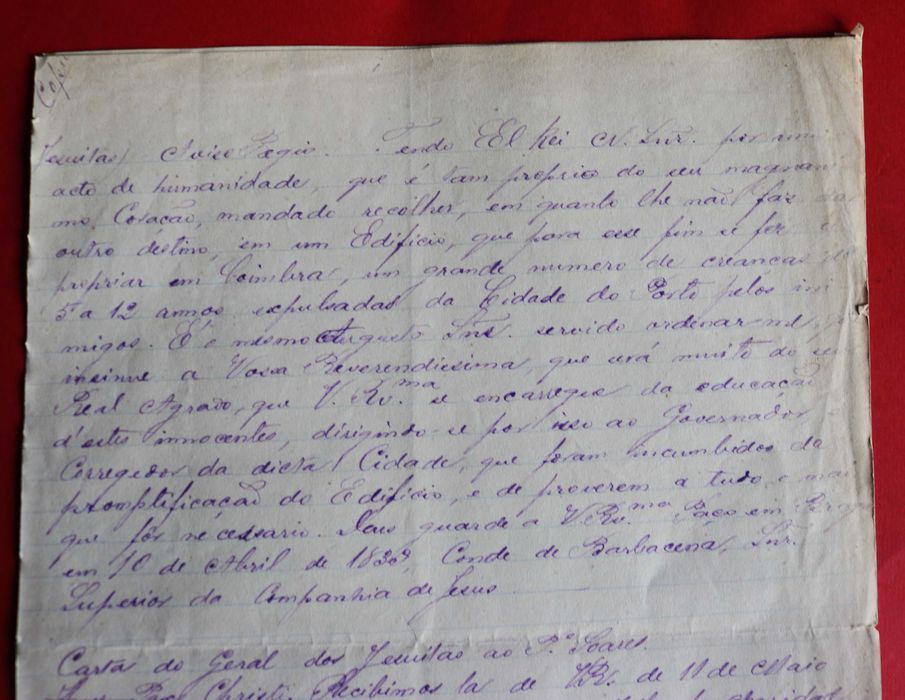 Copia
Jesuitas) Aviso Regio. Tendo El Rei N. Snr. por um
acto de humanidade, que é tam proprio do seu magnani
mo Coração, mandado recolher, em quanto lhe não faz dar
outro destino, em um Edificio, que para esse fim se fez
propriar em Coimbra, um grande numero de creanças de
5 a 12 annos expulsadas da Cidade do Porto pelos ini
migos. É o mesmo Augusto Snr. servido ordenar-me, q
insinue a Vossa Reverendissima, que será muito do seu
Real Agrado, que V. Rv.ma se encarregue da educação
d'estes innocentes, dirigindo-se por isso ao Governador e
Corregedor da dicta Cidade, que foram incumbidos da
promptificação do Edificio, e de proverem a tudo o mais
que fôr necessario. Deus guarde a V. Rv.ma Paço em
em 10 de Abril de 1833, Conde de Barbacena, Snr.
Superior da Companhia de Jesus
Carta do Geral dos Jesuitas ao P.e Soares.
Christi. Recibimos la de VR. de 11 de Maio